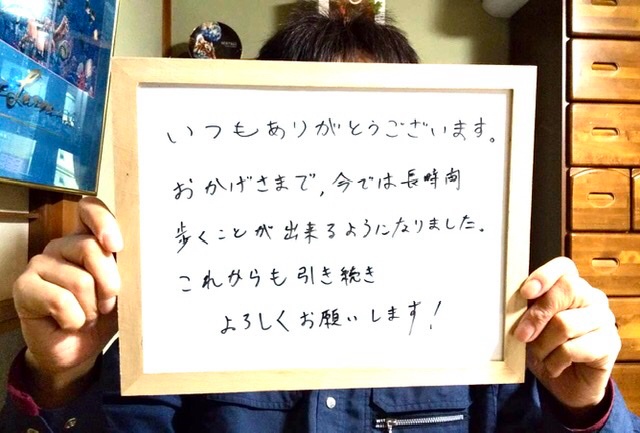 いつもありがとうございます。
おかげさまで,今では長時間
歩くことが出来るようになりました。
これからも引き続き
よろしくお願いします!